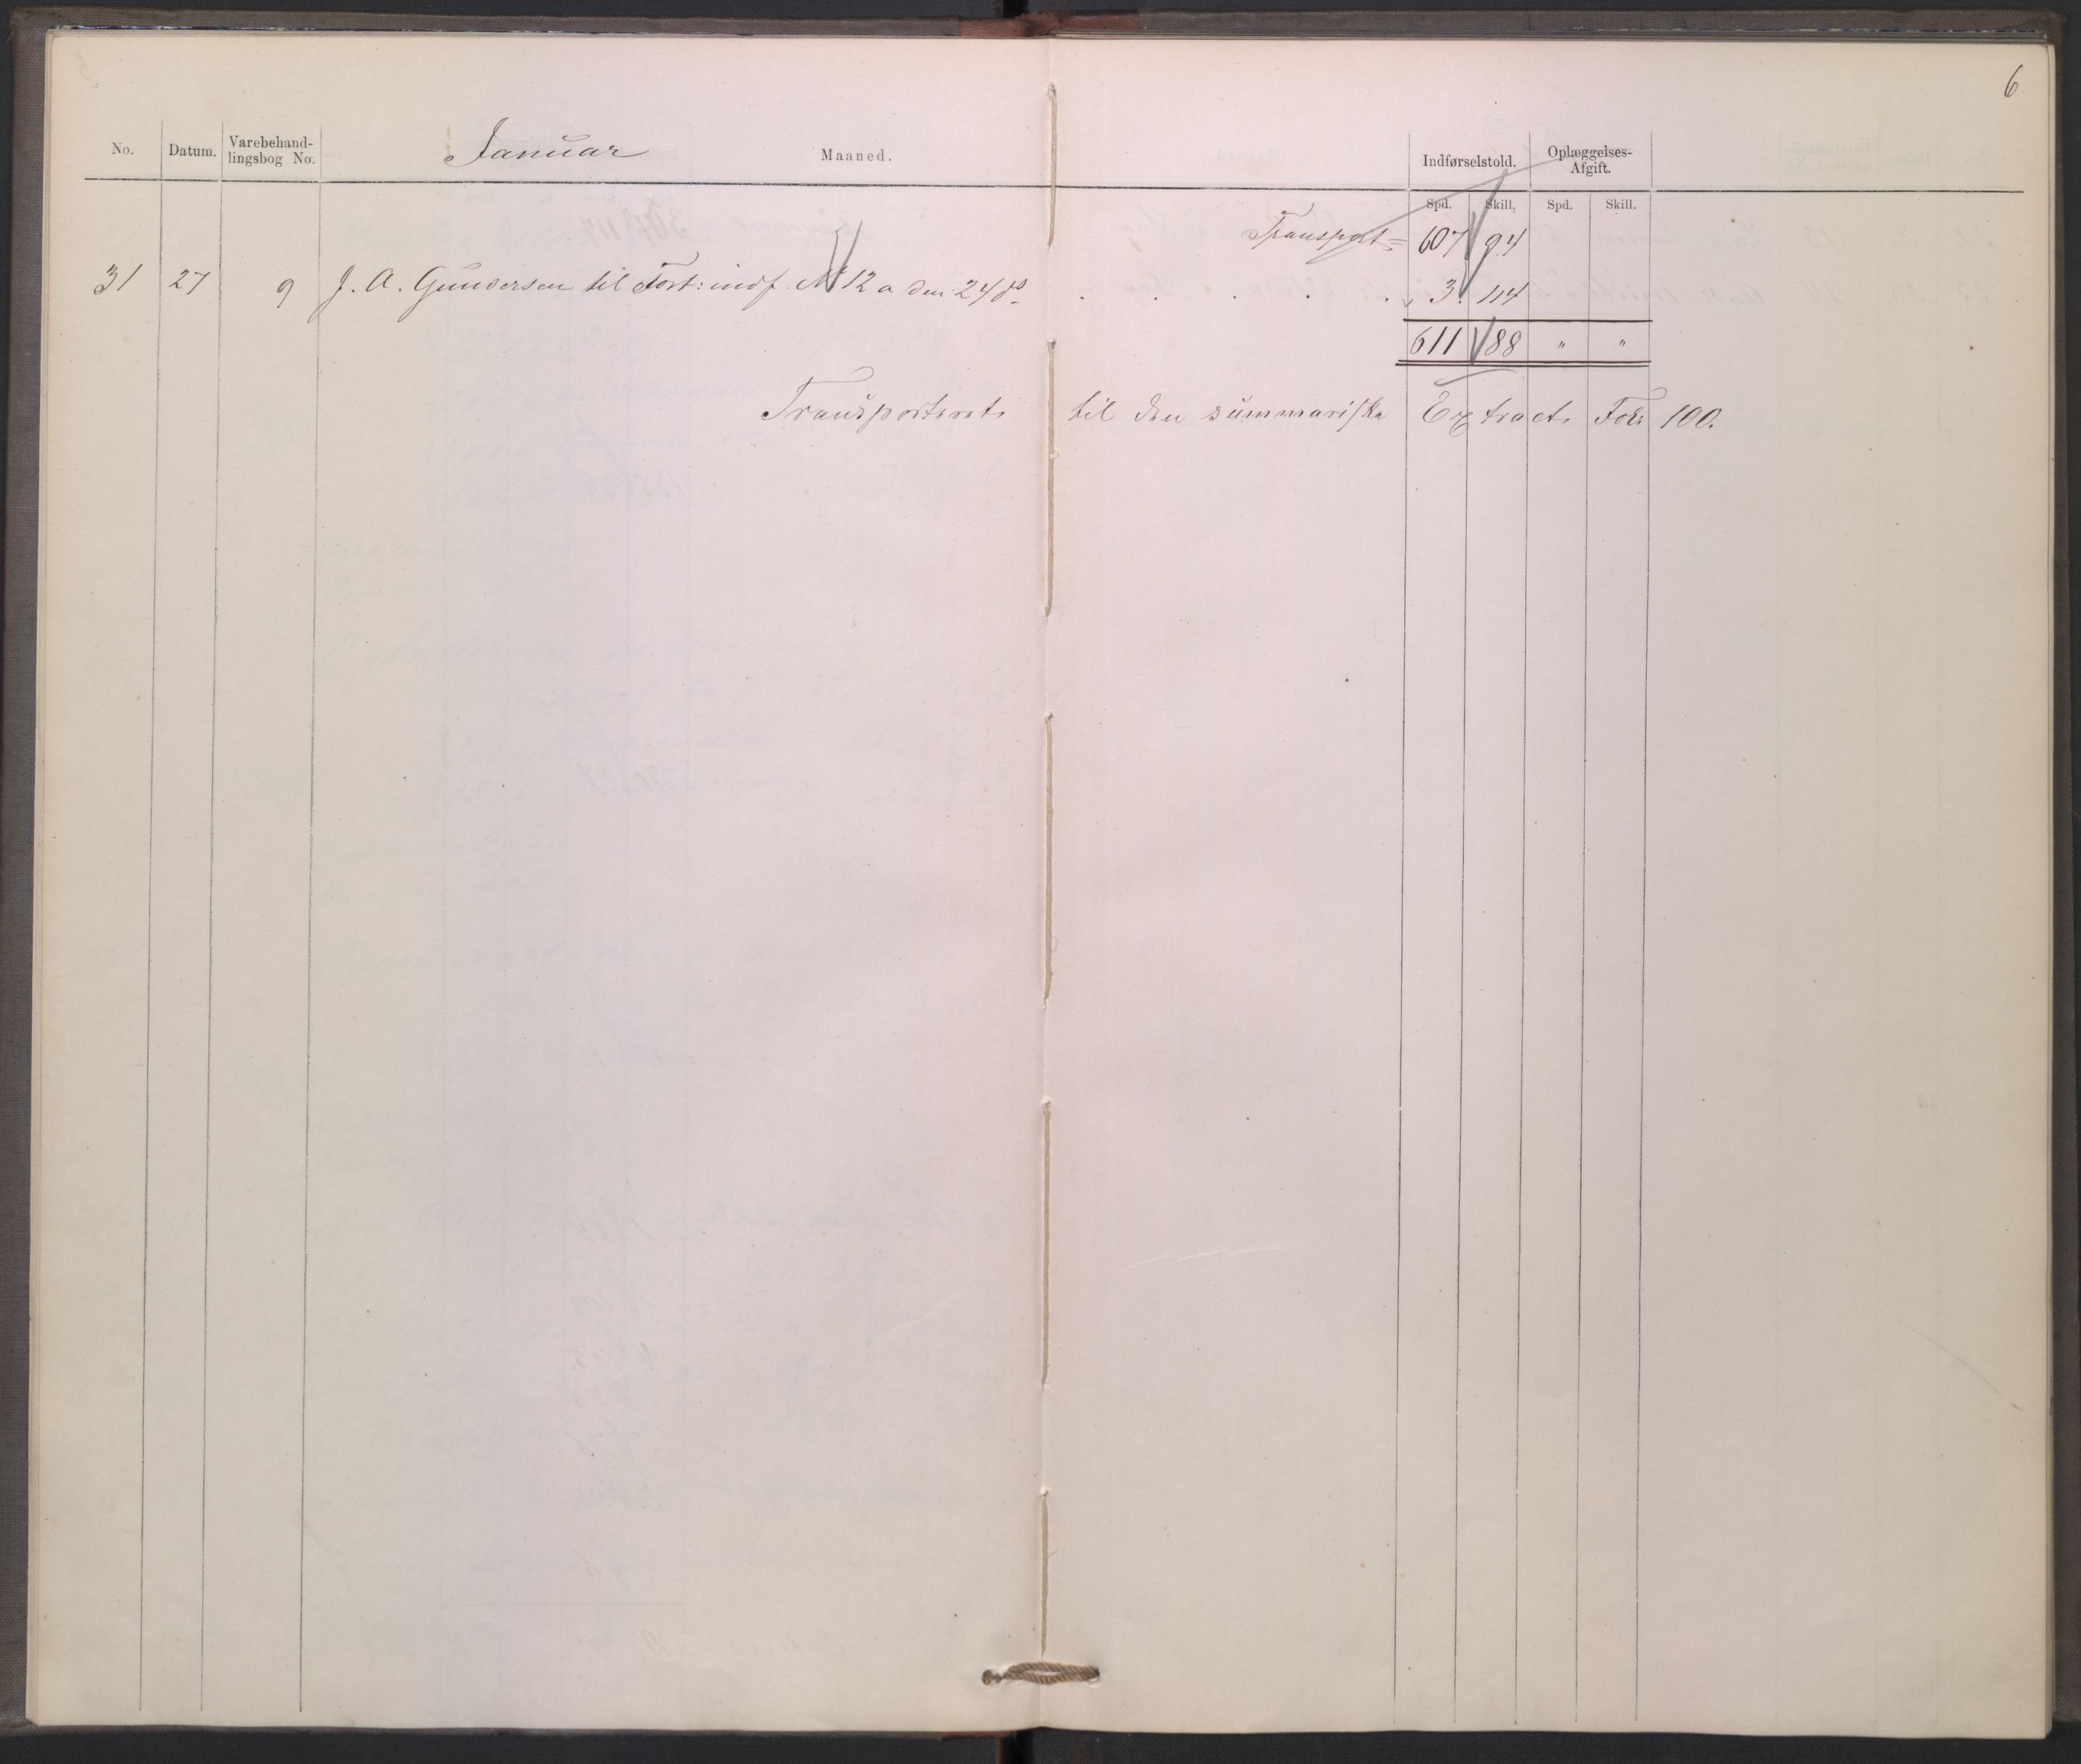 6
No. Datum. Varebehand-lingsbog No. Januar Maaned. Indførselstold. Oplæggelses-Afgift.
Spd. Skill. Spd. Skill.
Transport = 607 94
31 27 9 J. A. Gundersen til Fort: indf. No 12 a den 24 ds . . . . . 3. 114
611 88 " "
Transporteret til den summariske Extract, Fol: 100.